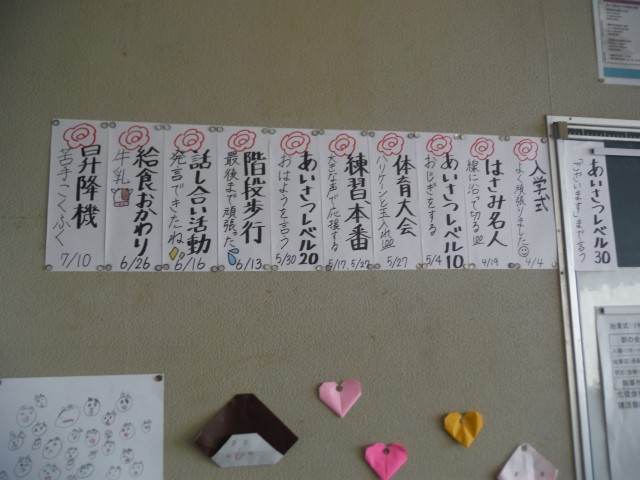 入学式
よく頑張りました
4/4
はさみ名人
線に沿って切る
4/19
あいさつレベル10
おじぎをする
5/4
体育大会
ハリケーンと玉入れ
5/27
練習、本番
大きな声で応援する
5/17、5/27
あいさつレベル20
おはようを言う
5/30
階段歩行
最後まで頑張った
6/13
話し合い活動
発言できたね
6/16
給食おかわり
牛乳
6/26
昇降機
苦手こくふく
7/10
あいさつレベル30
「ございます」まで言う